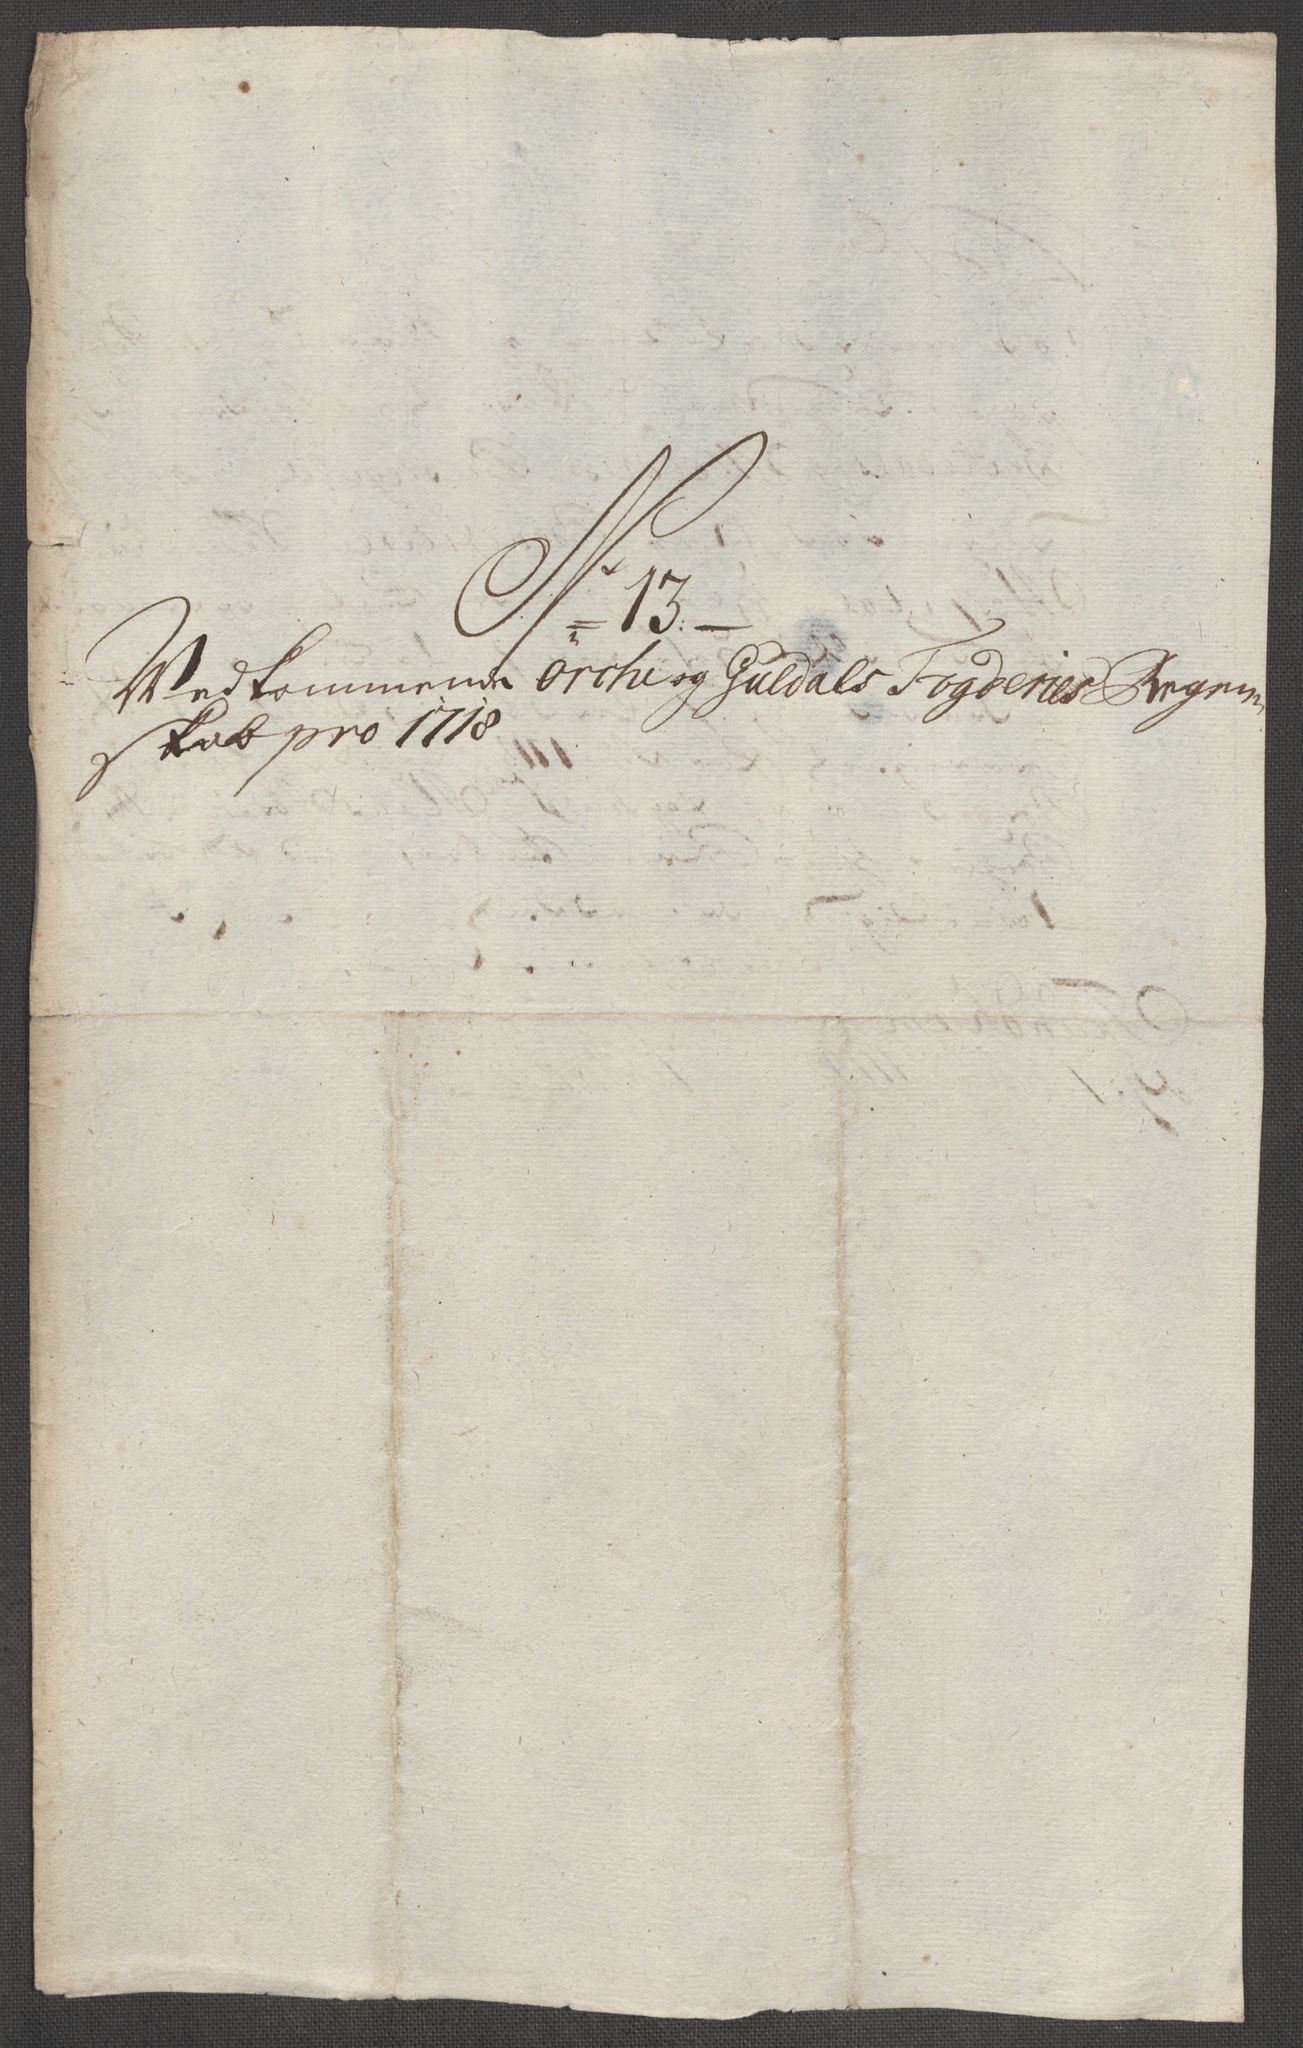 No 13.
Vedkommende örche og Guldals Fogderies Regen-
skab pro 1718